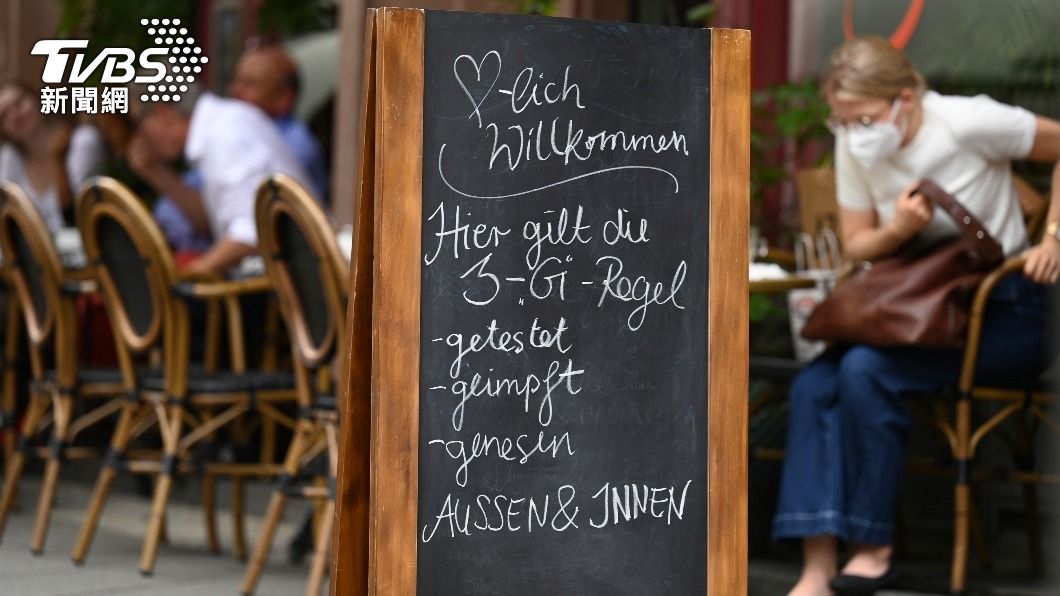 TVBS
新聞網
-lich
Willkommen
Hier gilt die
3-„G"-Regel
-getestet
-geimpft
-genesen
AUSSEN & INNEN